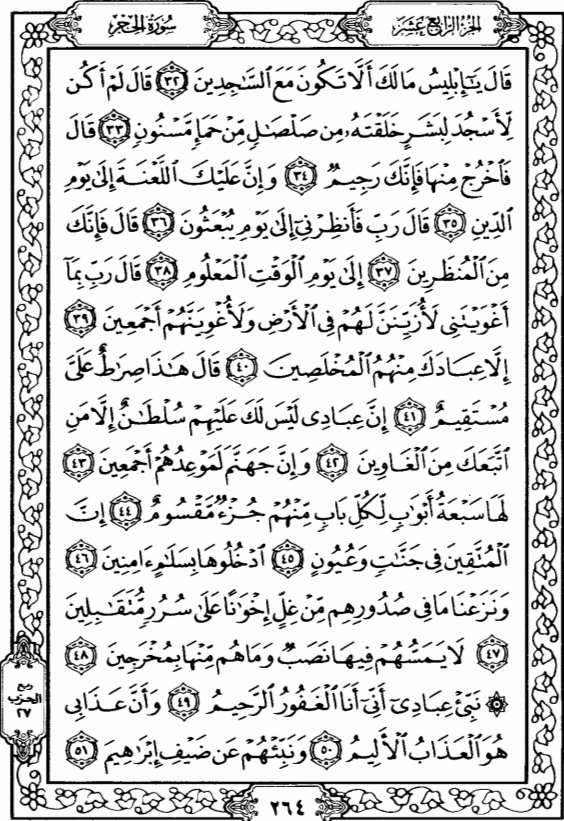 سُورَةُ الحِجْرِ
الجُزْءُ الرَّابِعُ عَشَرَ
قَالَ يَٰٓإِبۡلِيسُ مَالَكَ أَلَّا تَكُونَ مَعَ ٱلسَّٰجِدِينَ ٣٢ قَالَ لَمۡ أَكُن
لِّأَسۡجُدَ لِبَشَرٍ خَلَقۡتَهُۥ مِن صَلۡصَٰلٖ مِّنۡ حَمَإٖ مَّسۡنُونٖ ٣٣ قَالَ
فَٱخۡرُجۡ مِنۡهَا فَإِنَّكَ رَجِيمٞ ٣٤ وَإِنَّ عَلَيۡكَ ٱللَّعۡنَةَ إِلَىٰ يَوۡمِ
ٱلدِّينِ ٣٥ قَالَ رَبِّ فَأَنظِرۡنِيٓ إِلَىٰ يَوۡمِ يُبۡعَثُونَ ٣٦ قَالَ فَإِنَّكَ
مِنَ ٱلۡمُنظَرِينَ ٣٧ إِلَىٰ يَوۡمِ ٱلۡوَقۡتِ ٱلۡمَعۡلُومِ ٣٨ قَالَ رَبِّ بِمَآ
أَغۡوَيۡتَنِي لَأُزَيِّنَنَّ لَهُمۡ فِي ٱلۡأَرۡضِ وَلَأُغۡوِيَنَّهُمۡ أَجۡمَعِينَ ٣٩
إِلَّا عِبَادَكَ مِنۡهُمُ ٱلۡمُخۡلَصِينَ ٤٠ قَالَ هَٰذَا صِرَٰطٌ عَلَيَّ
مُسۡتَقِيمٌ ٤١ إِنَّ عِبَادِي لَيۡسَ لَكَ عَلَيۡهِمۡ سُلۡطَٰنٌ إِلَّا مَنِ
ٱتَّبَعَكَ مِنَ ٱلۡغَاوِينَ ٤٢ وَإِنَّ جَهَنَّمَ لَمَوۡعِدُهُمۡ أَجۡمَعِينَ ٤٣
لَهَا سَبۡعَةُ أَبۡوَٰبٖ لِّكُلِّ بَابٖ مِّنۡهُمۡ جُزۡءٞ مَّقۡسُومٌ ٤٤ إِنَّ
ٱلۡمُتَّقِينَ فِي جَنَّٰتٖ وَعُيُونٍ ٤٥ ٱدۡخُلُوهَا بِسَلَٰمٍ ءَامِنِينَ ٤٦
وَنَزَعۡنَا مَا فِي صُدُورِهِم مِّنۡ غِلٍّ إِخۡوَٰنًا عَلَىٰ سُرُرٖ مُّتَقَٰبِلِينَ
٤٧ لَا يَمَسُّهُمۡ فِيهَا نَصَبٞ وَمَا هُم مِّنۡهَا بِمُخۡرَجِينَ ٤٨
۞ نَبِّئۡ عِبَادِيٓ أَنِّيٓ أَنَا ٱلۡغَفُورُ ٱلرَّحِيمُ ٤٩ وَأَنَّ عَذَابِي
هُوَ ٱلۡعَذَابُ ٱلۡأَلِيمُ ٥٠ وَنَبِّئۡهُمۡ عَن ضَيۡفِ إِبۡرَٰهِيمَ ٥١
ربع
الحزب
٢٧
٢٦٤